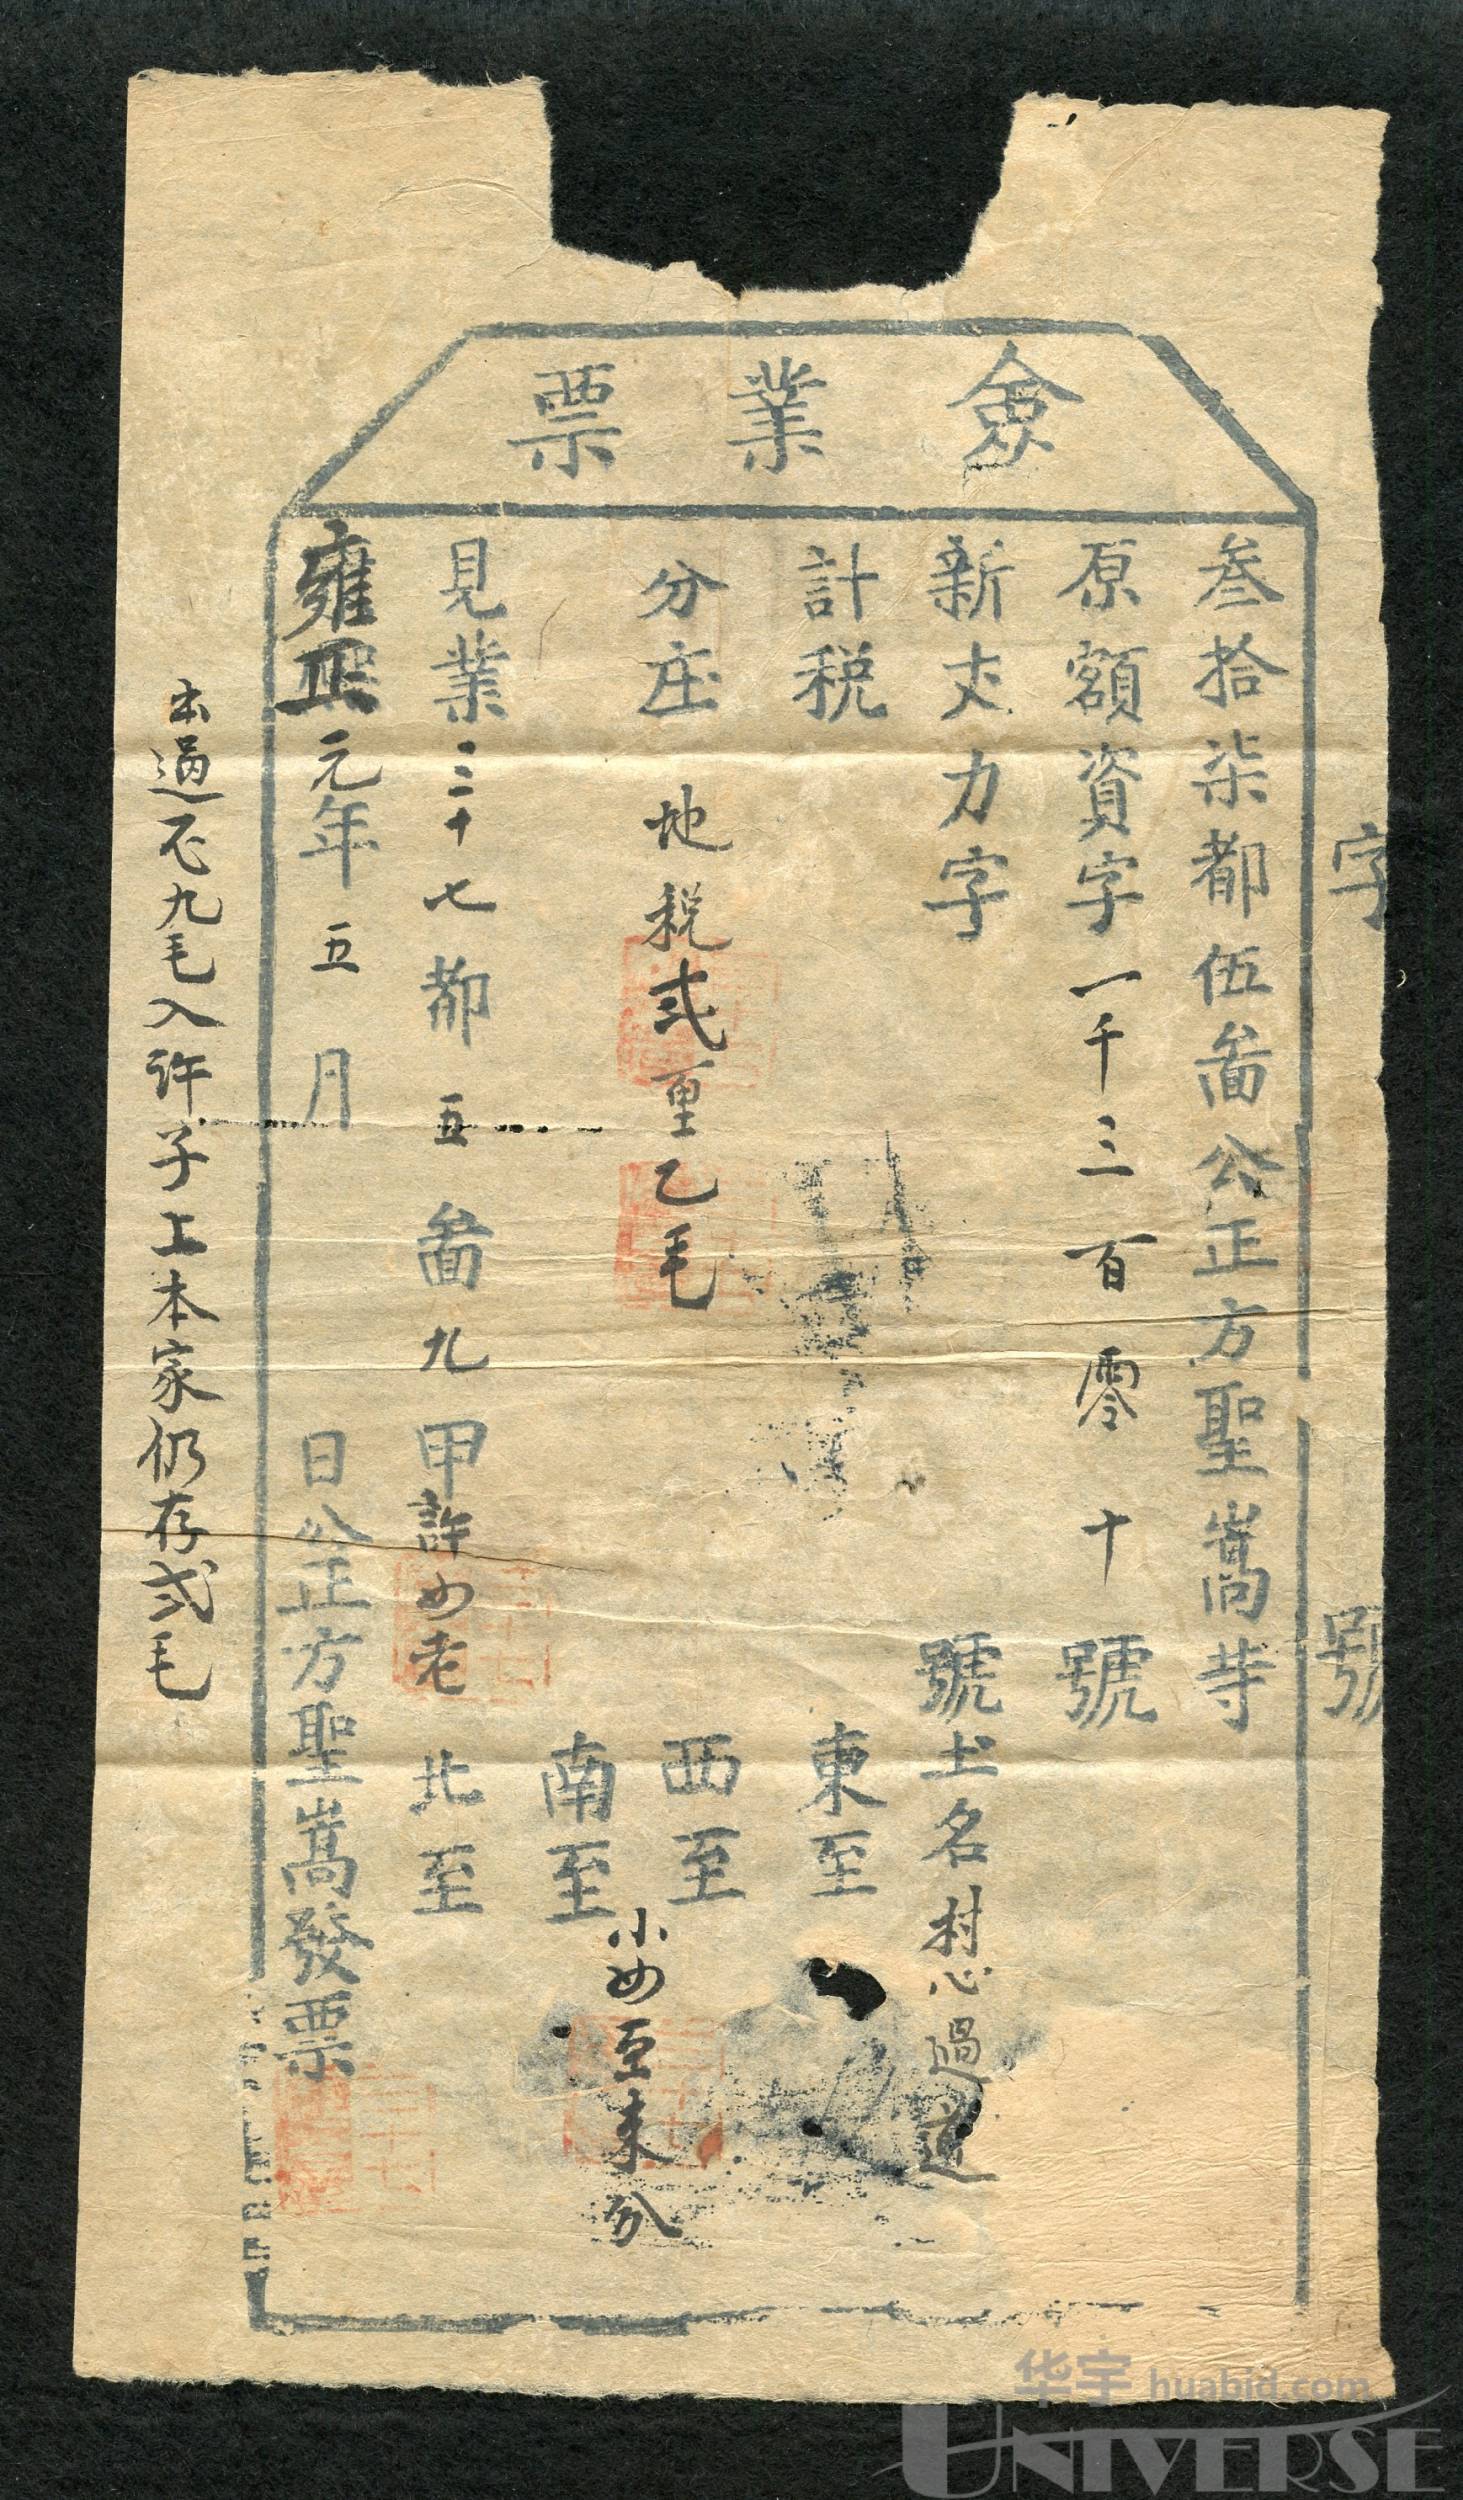 字 號
僉業票
叁拾柒都伍啚公正方聖嵩等
原額資字一千三百零十號
新丈力字 號土名村心過道
計稅 東至
分庄 地稅弍厘乙毛 西至
南至 小如至未分
見業三二十七都五啚九甲許如老 北至
雍正元年五月 日公正方聖嵩發票
本過九毛入許子上本家仍存弍毛
华宇 huabid.com
UNIVERSE